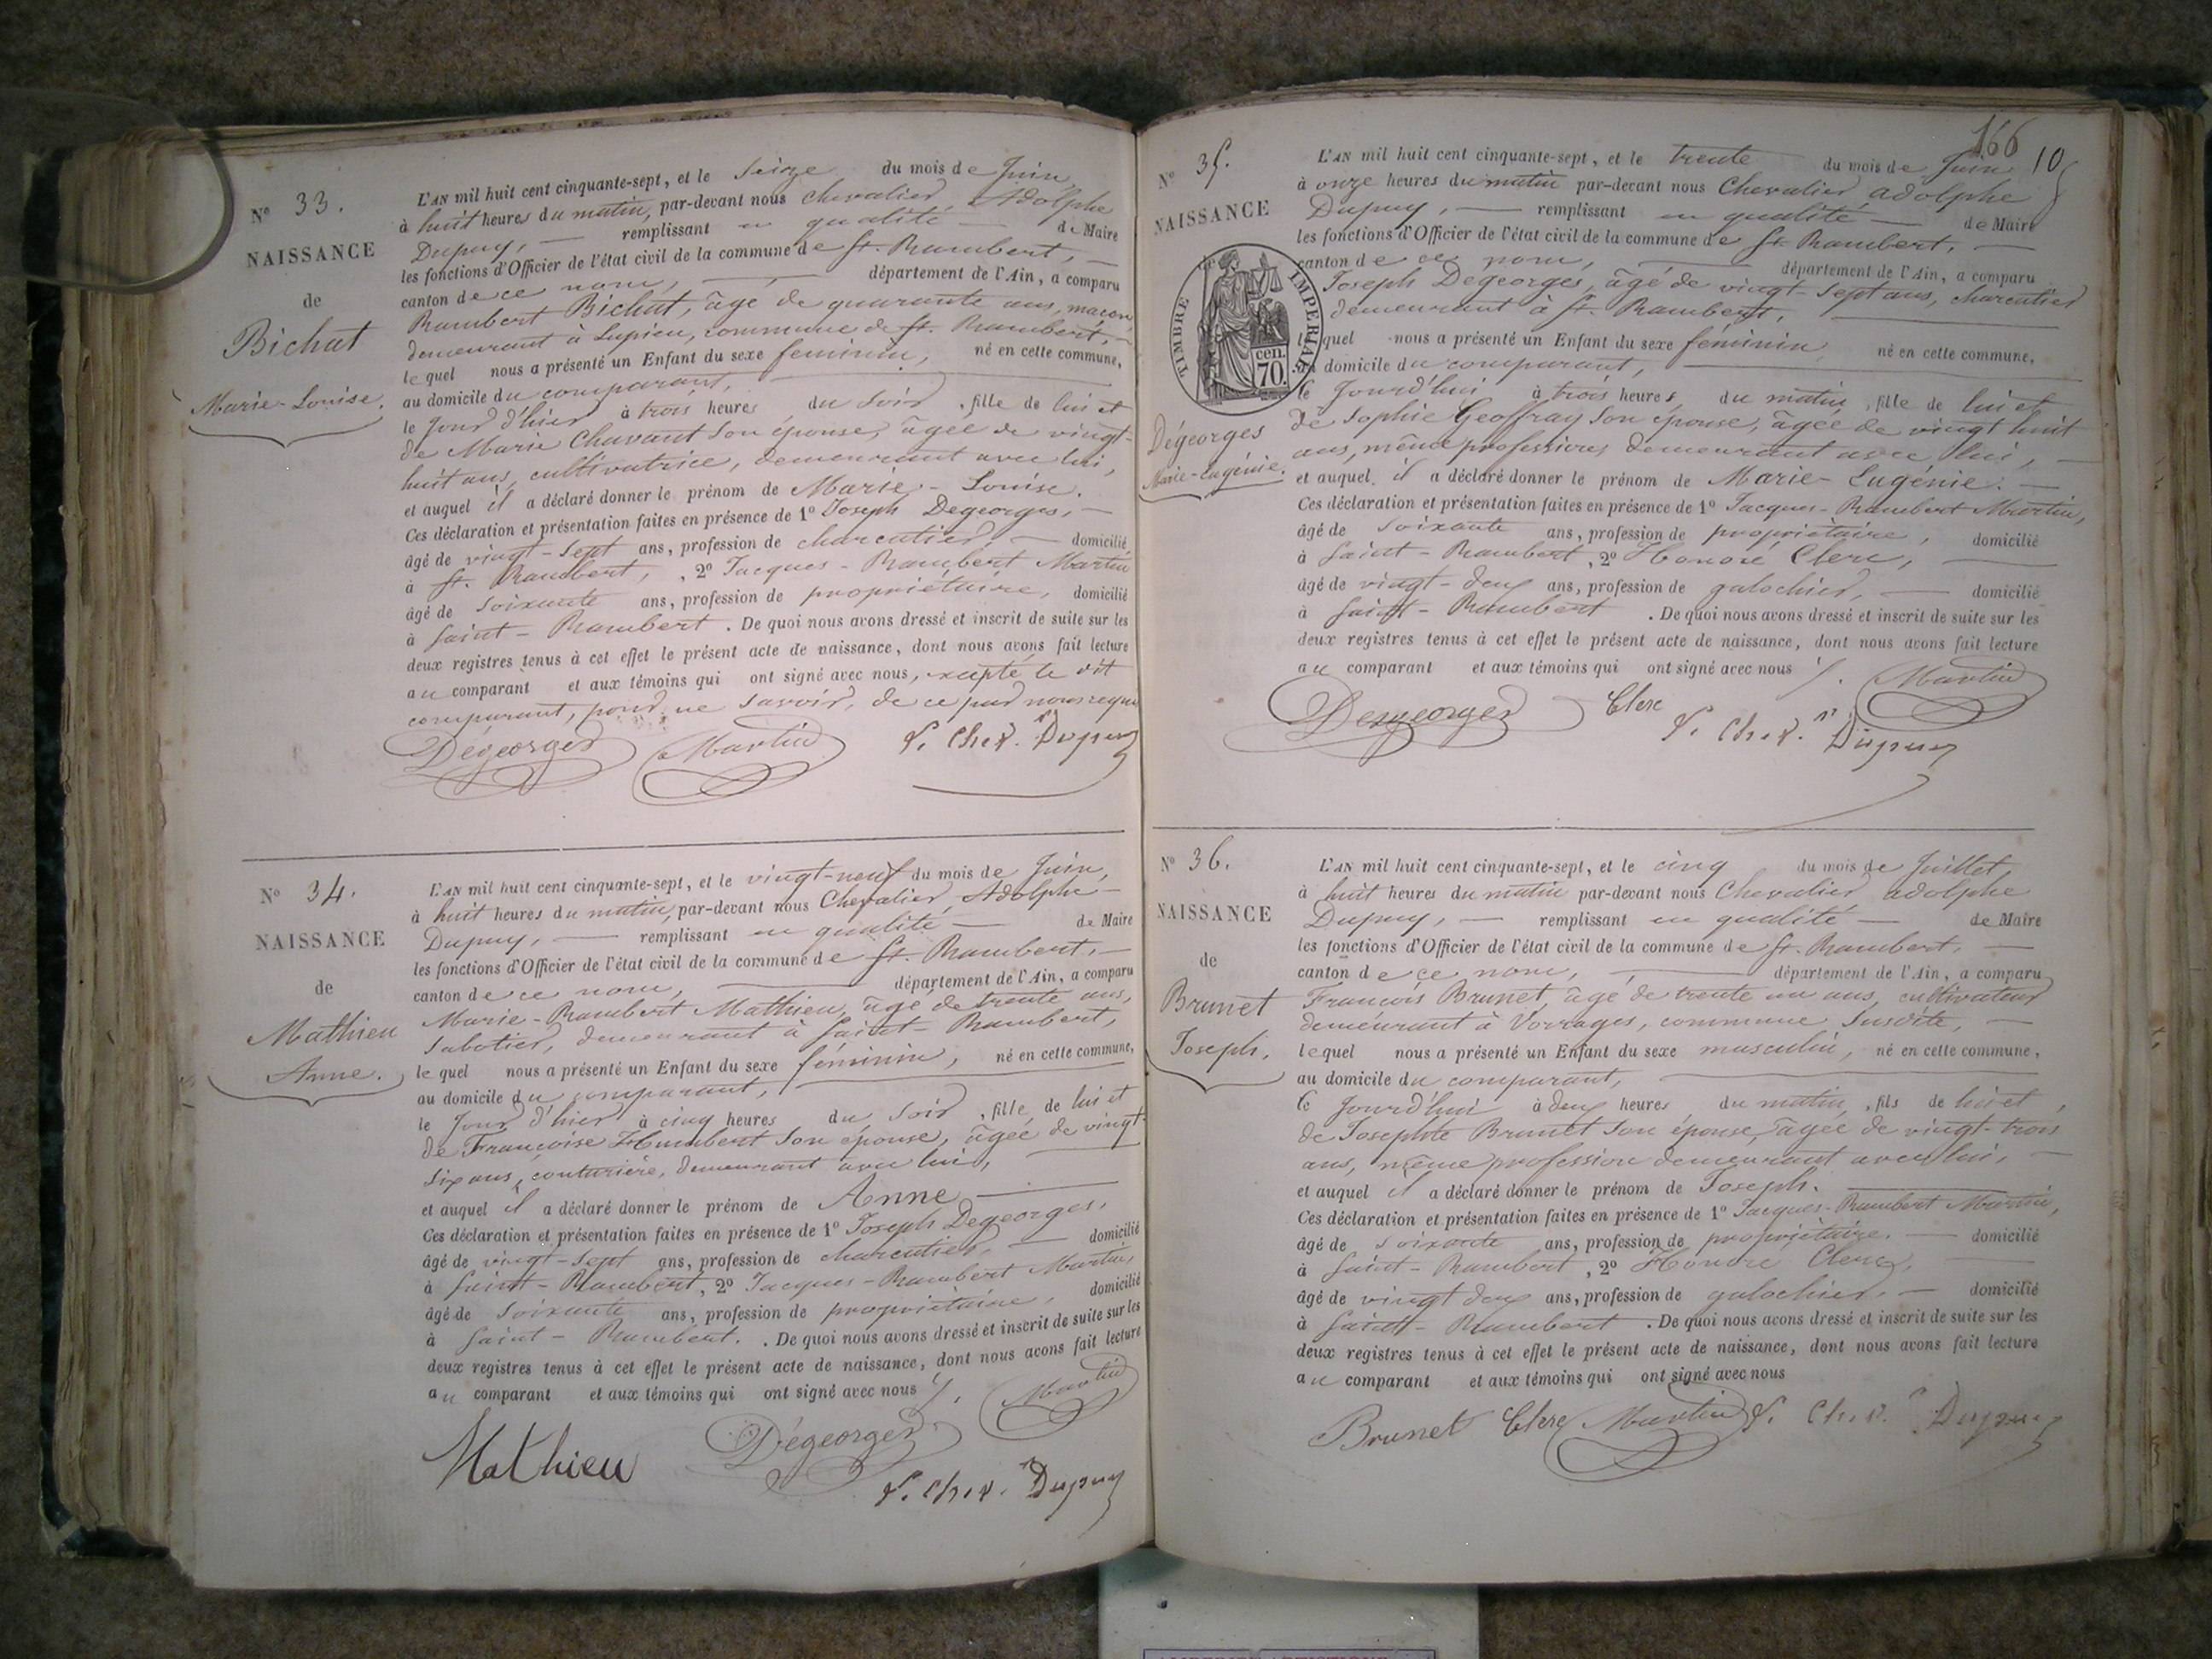 N° 33.
NAISSANCE
de
Bichat
Marie-Louise.
L'AN mil huit cent cinquante-sept, et le Seize du mois de Juin,
à huit heures du matin, par-devant nous Chevalier, Adolphe
Dupuy, — remplissant en qualité — de Maire
les fonctions d'Officier de l'état civil de la commune de St. Rambert, —
canton de ce nom, — département de l'Ain, a comparu
Rambert Bichat, âgé de quarante ans, maçon,
demeurant à Lupieu, commune de St. Rambert, —
lequel nous a présenté un Enfant du sexe féminin, né en cette commune,
au domicile du comparant, —
le jour d'hier à trois heures du soir, fille de lui et
de Marie Chavant son épouse, âgée de vingt-
huit ans, cultivatrice, demeurant avec lui,
et auquel il a déclaré donner le prénom de Marie-Louise.
Ces déclaration et présentation faites en présence de 1° Joseph Degeorges, —
âgé de vingt-sept ans, profession de charcutier — domicilié
à St. Rambert, 2° Jacques-Rambert Martin
âgé de soixante ans, profession de propriétaire, domicilié
à Saint-Rambert. De quoi nous avons dressé et inscrit de suite sur les
deux registres tenus à cet effet le présent acte de naissance, dont nous avons fait lecture
au comparant et aux témoins qui ont signé avec nous, excepté le dit
comparant, pour ne savoir, de ce par nous requis
Dégeorges Martin Chev. Dupuy
N° 34.
NAISSANCE
de
Mathieu
Anne.
L'AN mil huit cent cinquante-sept, et le vingt-neuf du mois de Juin,
à huit heures du matin, par-devant nous Chevalier, Adolphe
Dupuy, — remplissant en qualité — de Maire
les fonctions d'Officier de l'état civil de la commune de St. Rambert, —
canton de ce nom, — département de l'Ain, a comparu
Marie-Rambert Mathieu, âgé de trente ans,
sabotier, demeurant à Saint-Rambert,
lequel nous a présenté un Enfant du sexe féminin, né en cette commune,
au domicile du comparant, —
le jour d'hier à cinq heures du soir, fille de lui et
de Françoise Humbert son épouse, âgée de vingt-
six ans, couturière, demeurant avec lui, —
et auquel il a déclaré donner le prénom de Anne —
Ces déclaration et présentation faites en présence de 1° Joseph Degeorges,
âgé de vingt-sept ans, profession de charcutier, — domicilié
à Saint-Rambert, 2° Jacques-Rambert Martin,
âgé de soixante ans, profession de propriétaire, domicilié
à Saint-Rambert. De quoi nous avons dressé et inscrit de suite sur les
deux registres tenus à cet effet le présent acte de naissance, dont nous avons fait lecture
au comparant et aux témoins qui ont signé avec nous
Martin
Mathieu Dégeorges
Chev. Dupuy
166
10
N° 35.
NAISSANCE
TIMBRE IMPERIAL
70. cen.
Dégeorges
Marie-Eugénie.
L'AN mil huit cent cinquante-sept, et le trente du mois de Juin
à onze heures du matin par-devant nous Chevalier, adolphe
Dupuy, — remplissant en qualité — de Maire
les fonctions d'Officier de l'état civil de la commune de St. Rambert, —
canton de ce nom, — département de l'Ain, a comparu
Joseph Degeorges, âgé de vingt-sept ans, charcutier
demeurant à St. Rambert, —
lequel nous a présenté un Enfant du sexe féminin né en cette commune,
au domicile du comparant, —
le jourd'hui à trois heures du matin, fille de lui et
de Sophie Geoffray son épouse, âgée de vingt huit
ans, même profession, demeurant avec lui, —
et auquel il a déclaré donner le prénom de Marie-Eugénie. —
Ces déclaration et présentation faites en présence de 1° Jacques-Rambert Martin,
âgé de soixante ans, profession de propriétaire, domicilié
à Saint-Rambert, 2° Honoré Clerc, —
âgé de vingt-deux ans, profession de galochier, — domicilié
à Saint-Rambert. De quoi nous avons dressé et inscrit de suite sur les
deux registres tenus à cet effet le présent acte de naissance, dont nous avons fait lecture
au comparant et aux témoins qui ont signé avec nous
Martin
Desgeorges Clerc
Chev. Dupuy
N° 36.
NAISSANCE
de
Brunet
Joseph.
L'AN mil huit cent cinquante-sept, et le cinq du mois de Juillet,
à huit heures du matin par-devant nous Chevalier, adolphe
Dupuy, — remplissant en qualité — de Maire
les fonctions d'Officier de l'état civil de la commune de St. Rambert, —
canton de ce nom, — département de l'Ain, a comparu
François Brunet, âgé de trente un ans, cultivateur
demeurant à Vorrages, commune susdite, —
lequel nous a présenté un Enfant du sexe masculin, né en cette commune,
au domicile du comparant, —
le jourd'hui à deux heures du matin, fils de lui et
de Josephte Brunet son épouse, âgée de vingt-trois
ans, même profession demeurant avec lui, —
et auquel il a déclaré donner le prénom de Joseph. —
Ces déclaration et présentation faites en présence de 1° Jacques-Rambert Martin,
âgé de soixante ans, profession de propriétaire, — domicilié
à Saint-Rambert, 2° Honoré Clerc, —
âgé de vingt deux ans, profession de galochier, — domicilié
à Saint-Rambert. De quoi nous avons dressé et inscrit de suite sur les
deux registres tenus à cet effet le présent acte de naissance, dont nous avons fait lecture
au comparant et aux témoins qui ont signé avec nous
Brunet Clerc Martin Chev. Dupuy